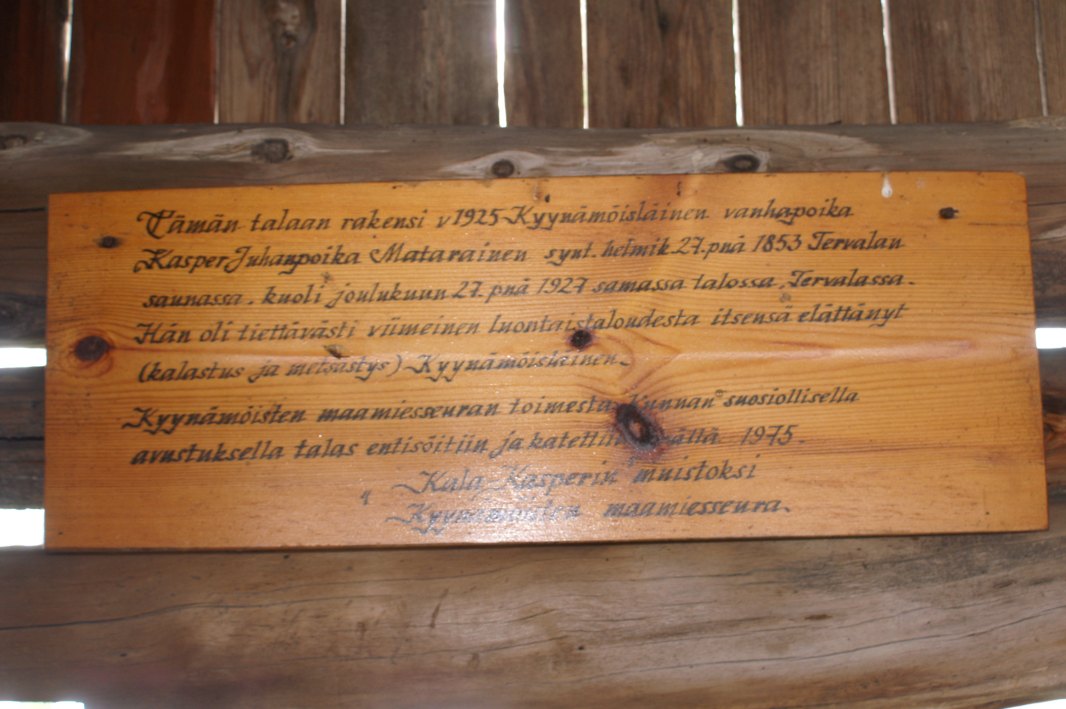 Tämän talaan rakensi v 1925 Kyynämöisläinen vanhapoika
Kasper Juhanpoika Matarainen synt. helmik. 27. pnä 1853 Tervalan
saunassa. kuoli joulukuun 27. pnä 1927 samassa talossa, Tervalassa.
Hän oli tiettävästi viimeinen luontaistaloudesta itsensä elättänyt
(kalastus ja metsästys) Kyynämöisläinen.
Kyynämöisten maamiesseuran toimesta Kunnan suosiollisella
avustuksella talas entisöitiin ja katettiin 1975.
"Kala Kasperin" muistoksi
Kyynämöisten maamiesseura.